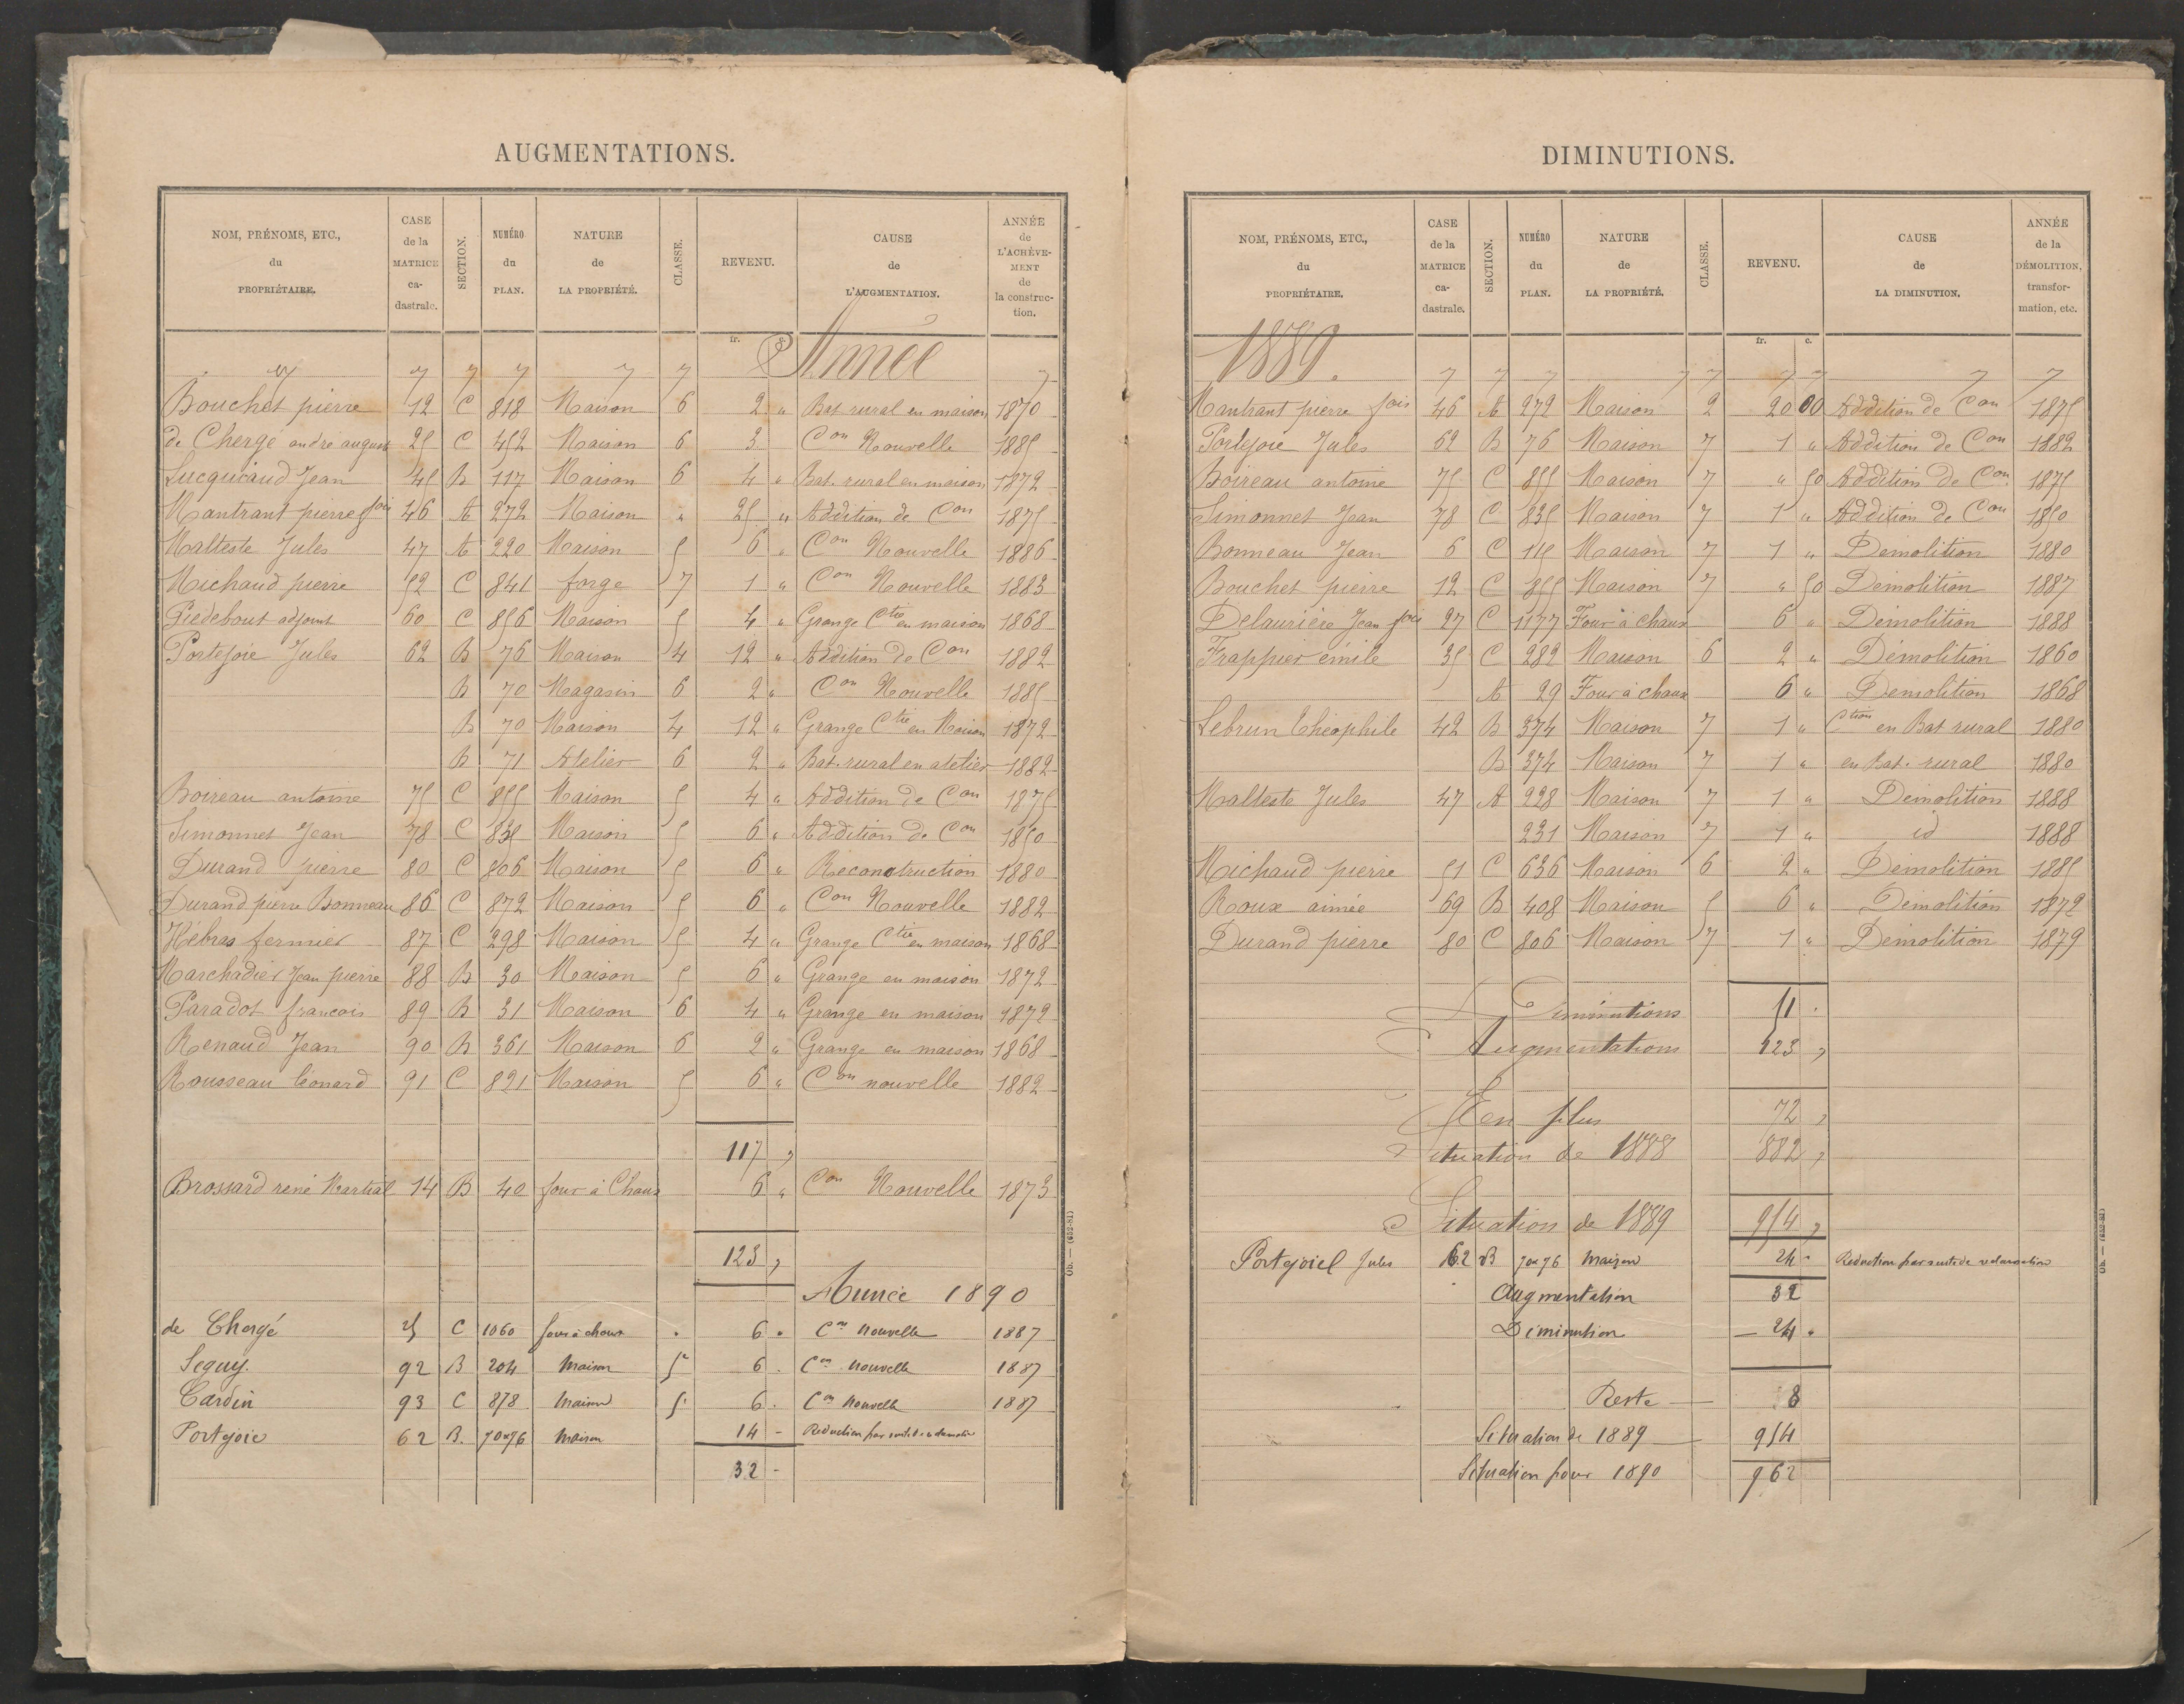 AUGMENTATIONS.
NOM, PRÉNOMS, ETC., du PROPRIÉTAIRE. CASE de la MATRICE ca- dastrale. SECTION. NUMÉRO du PLAN. NATURE de LA PROPRIÉTÉ. CLASSE. REVENU. CAUSE de L'AUGMENTATION. ANNÉE de L'ACHÈVE- MENT de la construc- tion.
fr. c.
Année
Bouchet pierre 12 C 818 Maison 6 2 " Bat rural en maison 1870
de Chergé andré august 25 C 452 Maison 6 3 Con Nouvelle 1885
Lucquiaud Jean 45 B 117 Maison 6 4 " Bat. rural en maison 1872
Mantrant pierre fois 46 A 272 Maison " 25 " Addition de Con 1875
Malteste Jules 47 A 220 Maison 5 6 " Con Nouvelle 1886
Michaud pierre 52 C 841 forge 7 1 " Con Nouvelle 1883
Piedebout adjoint 60 C 856 Maison 5 4 " Grange Ctie en maison 1868
Portejoie Jules 62 B 76 Maison 4 12 " Addition de Con 1882
B 70 Magasin 6 2 " Con Nouvelle 1885
B 70 Maison 4 12 " Grange Ctie en Maison 1872
B 71 Atelier 6 2 " Bat. rural en atelier 1882
Boireau antoine 75 C 855 Maison 5 4 " Addition de Con 1875
Simonnet Jean 78 C 835 Maison 5 6 " Addition de Con 1850
Durand pierre 80 C 806 Maison 5 6 " Reconstruction 1880
Durand pierre Bonneau 86 C 872 Maison 5 6 " Con Nouvelle 1882
Hébras fermier 87 C 298 Maison 5 4 " Grange Ctie en maison 1868
Marchadier Jean pierre 88 B 30 Maison 5 6 " Grange en maison 1872
Paradot francois 89 B 31 Maison 6 4 " Grange en maison 1872
Renaud Jean 90 B 361 Maison 6 2 " Grange en maison 1868
Rousseau léonard 91 C 821 Maison 5 6 " Con nouvelle 1882
117 "
Brossard rené Martial 14 B 40 four à Chaux 6 " Con Nouvelle 1873
123 "
Année 1890
de Chergé 25 C 1060 four à chaux . 6 . Con nouvelle 1887
Seguy. 92 B 204 Maison 5 6 . Con nouvelle 1887
Cardin 93 C 878 Maison 5 6 . Con Nouvelle 1887
Portejoie 62 B. 70 76 Maison 14 - Reduction par suite de reclamation
32 -
Ob. — (652-81)
DIMINUTIONS.
NOM, PRÉNOMS, ETC., du PROPRIÉTAIRE. CASE de la MATRICE ca- dastrale. SECTION. NUMÉRO du PLAN. NATURE de LA PROPRIÉTÉ. CLASSE. REVENU. CAUSE de LA DIMINUTION. ANNÉE de la DÉMOLITION, transfor- mation, etc.
fr. c.
1889.
Mantrant pierre fois 46 A 272 Maison 2 20 00 Addition de Con 1875
Portejoie Jules 62 B 76 Maison 7 1 " Addition de Con 1882
Boireau antoine 75 C 855 Maison 7 " 50 Addition de Con 1875
Simonnet Jean 78 C 835 Maison 7 1 " Addition de Con 1850
Bonneau Jean 6 C 115 Maison 7 1 " Démolition 1880
Bouchet pierre 12 C 855 Maison 7 " 50 Démolition 1887
Delaurière Jean fois 27 C 1177 Four à chaux 6 " Démolition 1888
Frappier émile 35 C 282 Maison 6 2 " Démolition 1860
A 29 Four à chaux 6 " Démolition 1868
Lebrun théophile 42 B 374 Maison 7 1 " Ction en Bat rural 1880
B 374 Maison 7 1 " en Bat. rural 1880
Malteste Jules 47 A 228 Maison 7 1 " Démolition 1888
231 Maison 7 1 " id 1888
Michaud pierre 51 C 636 Maison 6 2 " Démolition 1885
Roux aimée 69 B 408 Maison 5 6 " Démolition 1872
Durand pierre 80 C 806 Maison 7 1 " Démolition 1879
Diminutions 51 .
Augmentations 123 "
En plus 72 "
Situation de 1888 882 "
Situation de 1889 954 "
Portejoiel Jules 62 B 70 76 Maison 24 - Reduction par suite de reclamation
Augmentation 32
Diminution — 24 .
Reste — 8
Situation de 1889 — 954
Situation pour 1890 962
Ob. — (652-81)